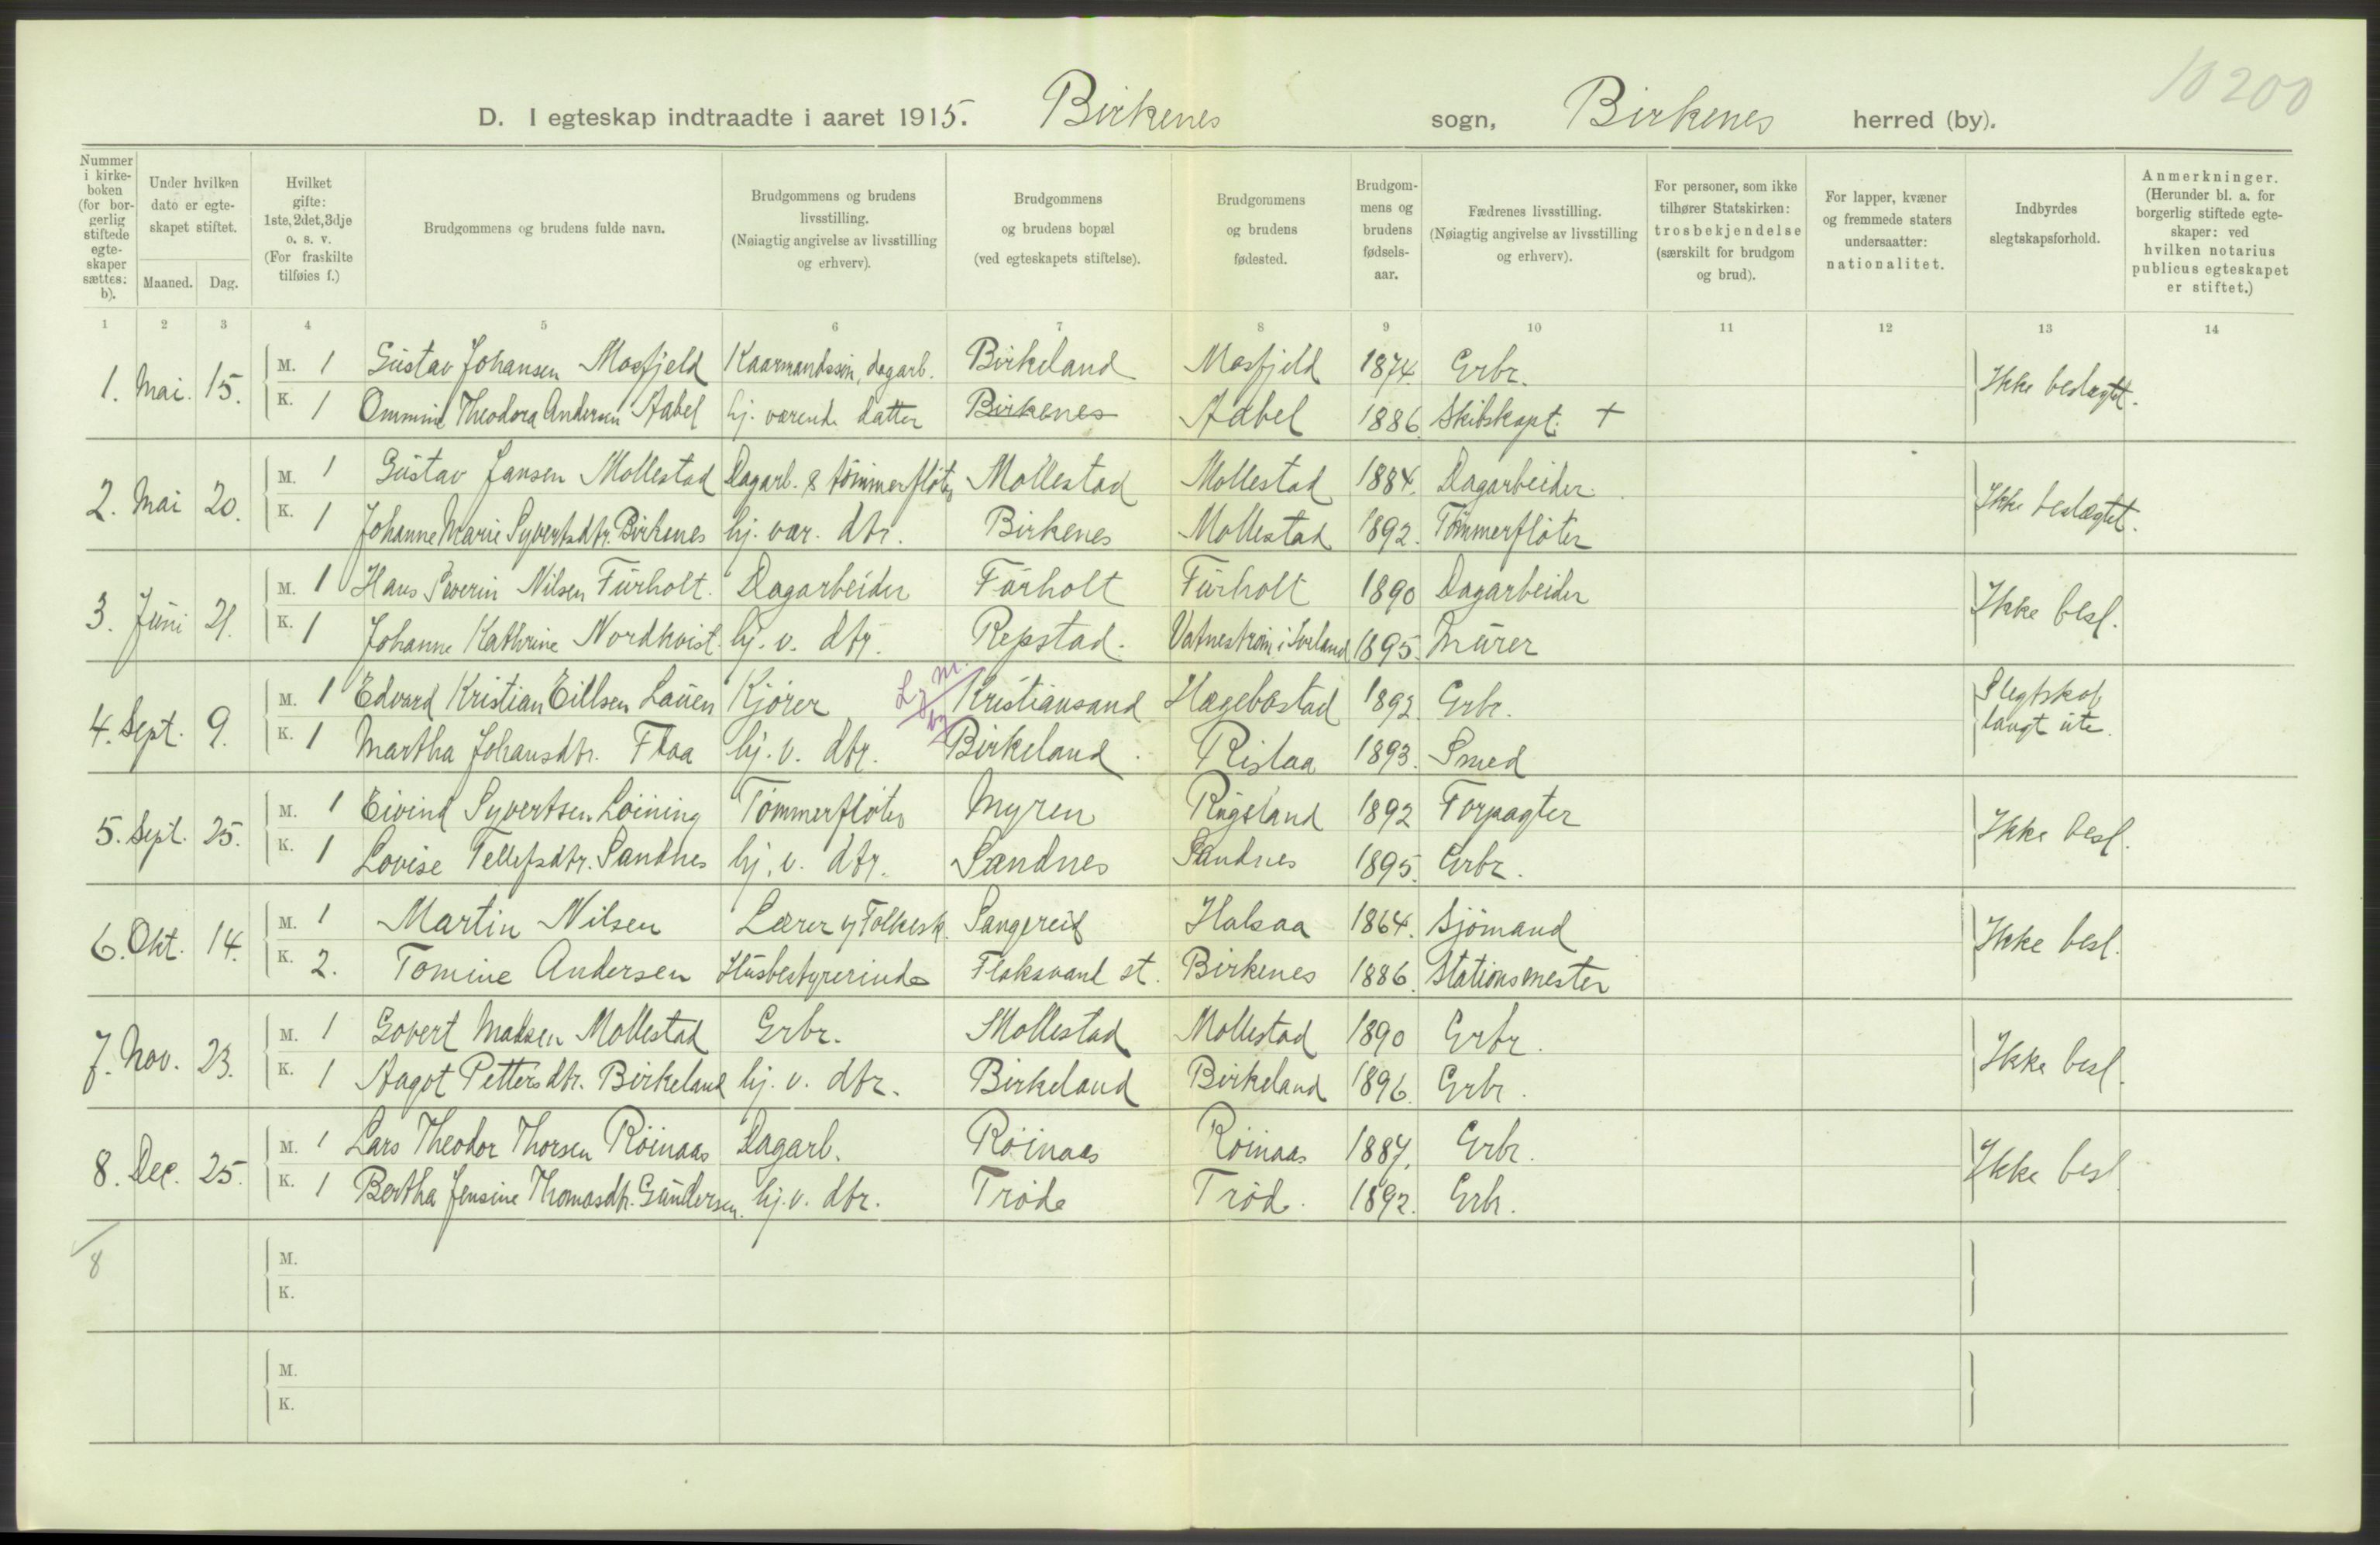 10200
D. I egteskap indtraadte i aaret 1915. Birkenes sogn, Birkenes herred (by).
Nummer i kirke-boken (for bor-gerlig stiftede egte-skaper sættes: b).
Under hvilken dato er egte-skapet stiftet.
Maaned. Dag.
Hvilket gifte: 1ste, 2det, 3dje o. s. v. (For fraskilte tilføies f.)
Brudgommens og brudens fulde navn.
Brudgommens og brudens livsstilling. (Nøiagtig angivelse av livsstilling og erhverv).
Brudgommens og brudens bopæl (ved egteskapets stiftelse).
Brudgommens og brudens fødested.
Brudgom-mens og brudens fødsels-aar.
Fædrenes livsstilling. (Nøiagtig angivelse av livsstilling og erhverv).
For personer, som ikke tilhører Statskirken: trosbekjendelse (særskilt for brudgom og brud).
For lapper, kvæner og fremmede staters undersaatter: nationalitet.
Indbyrdes slegtskapsforhold.
Anmerkninger. (Herunder bl. a. for borgerlig stiftede egte-skaper: ved hvilken notarius publicus egteskapet er stiftet.)
1 2 3 4 5 6 7 8 9 10 11 12 13 14
1. Mai. 15. M. 1 Gustav Johansen Mosfjeld Kaarmandssøn, dagarb. Birkeland Mosfjeld 1874. Grbr. Ikke beslægtet.
K. 1 Theodora Andersen Aabel hj. værende datter Birkenes Aabel 1886. Skibskapt. +
2. Mai 20. M. 1 Gustav Jansen Mollestad Dagarb. & tømmerfløter Mollestad Mollestad 1884. Dagarbeider. Ikke beslægtet.
K. 1 Johanne Marie Syvertsdtr. Birkenes hj. vær. dtr. Birkenes Mollestad 1892. Tømmerfløter
3. Juni 21. M. 1 Hans Severin Nilsen Furholt. Dagarbeider Furholt Furholt 1890 Dagarbeider Ikke besl.
K. 1 Johanne Kathrine Nordkvist. hj. v. dtr. Repstad. Vatnestrøm i Iveland 1895. Murer
4. Sept. 9. M. 1 Edvard Kristian Eillsen Lauen Kjører Kristiansand Hægebostad 1892. Grbr. Slegtskab langt ute.
K. 1 Martha Johansdtr. Flaa hj. v. dtr. Birkeland. Rislaa 1893. Smed
5. Sept. 25. M. 1 Eivind Syvertsen Løining Tømmerfløter Myren Rugsland 1892 Forpagter Ikke besl.
K. 1 Lovise Tellefsdtr. Sandnes hj. v. dtr. Sandnes Sandnes 1895. Grbr.
6. Okt. 14. M. 1 Martin Nilsen Lærer v/ Folkesk. Sangereid Halsaa 1864. Sjømand Ikke besl.
K. 2. Tomine Andersen Husbestyrerinde Flaksvand st. Birkenes 1886. Stationsmester
7. Nov. 23. M. 1 Govert Madsen Mollestad Grbr. Mollestad Mollestad 1890 Grbr. Ikke besl.
K. 1 Aagot Pettersdtr. Birkeland hj. v. dtr. Birkeland Birkeland 1896. Grbr.
8. Dec. 25. M. 1 Lars Theodor Thorsen Røinaas Dagarb. Røinaas Røinaas 1887. Grbr. Ikke besl
K. 1 Bertha Jensine Thomasdtr. Gundersen. hj. v. dtr. Trøde Trøde. 1892. Grbr.
8 M.
K.
M.
K.